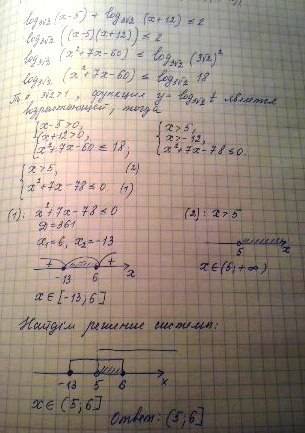 log₃√₂(x-5) + log₃√₂(x+12) ≤ 2
log₃√₂((x-5)(x+12)) ≤ 2
log₃√₂(x²+7x-60) ≤ log₃√₂(3√2)²
log₃√₂(x²+7x-60) ≤ log₃√₂ 18
Т.к. 3√2>1, функция y=log₃√₂ t является
возрастающей, тогда
{x-5>0, {x>5,
{x+12>0, {x>-12,
{x²+7x-60≤18; {x²+7x-78≤0.
{x>5, (2)
{x²+7x-78≤0 (1)
(1): x²+7x-78≤0 (2): x>5
D=361
x₁=6, x₂=-13
+ - +
-13 6 x 5 x
x∈[-13;6] x∈(5;+∞)
Найдём решение системы:
-13 5 6 x
x∈(5;6]
Ответ: (5;6]